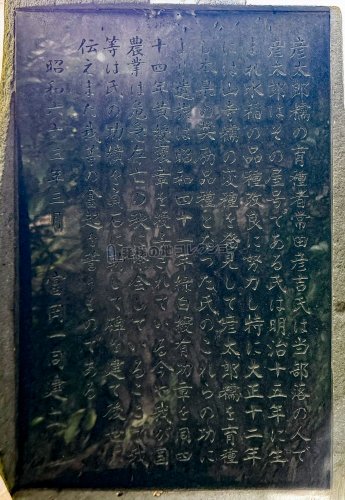 彦太郎糯の育種者常田彦吉氏は当部落の人で
彦太郎はその屋号である氏は明治十五年に生
まれ水稲の品種改良に努力し特に大正十二年
には山寺糯の変種を発見して彦太郎糯を育種
し本県の奨励品種となった氏のこれらの功に
より昭和四十一年緑白綬有功章を同四
十四年黄綬褒章を授与されている今や我が国
農業は危急存亡の秋に会しているとき我
等は氏の功績を して碑を建て後世に
伝えまた我等の奮起を誓うものである
昭和六十三年三月 宮岡一同建之